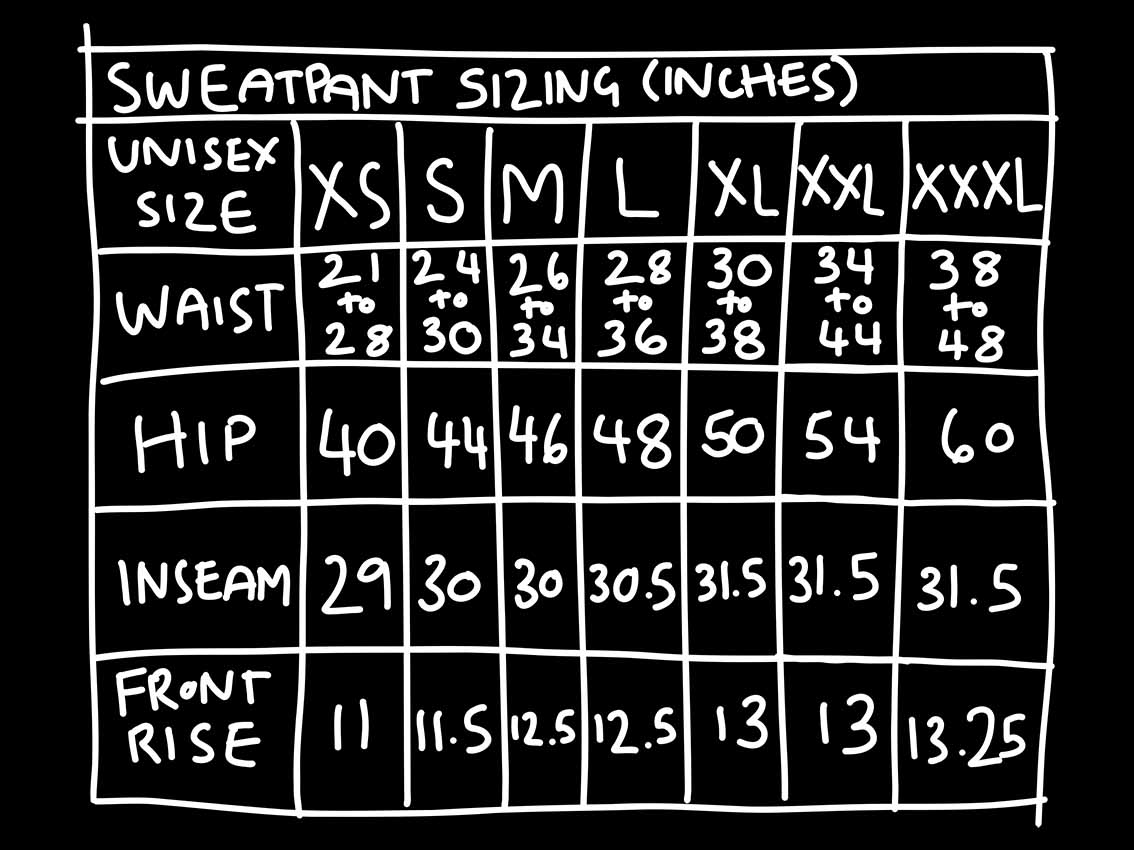 SWEATPANT SIZING (INCHES)
UNISEX SIZE XS S M L XL XXL XXXL
WAIST 21 to 28 24 to 30 26 to 34 28 to 36 30 to 38 34 to 44 38 to 48
HIP 40 44 46 48 50 54 60
INSEAM 29 30 30 30.5 31.5 31.5 31.5
FRONT RISE 11 11.5 12.5 12.5 13 13 13.25